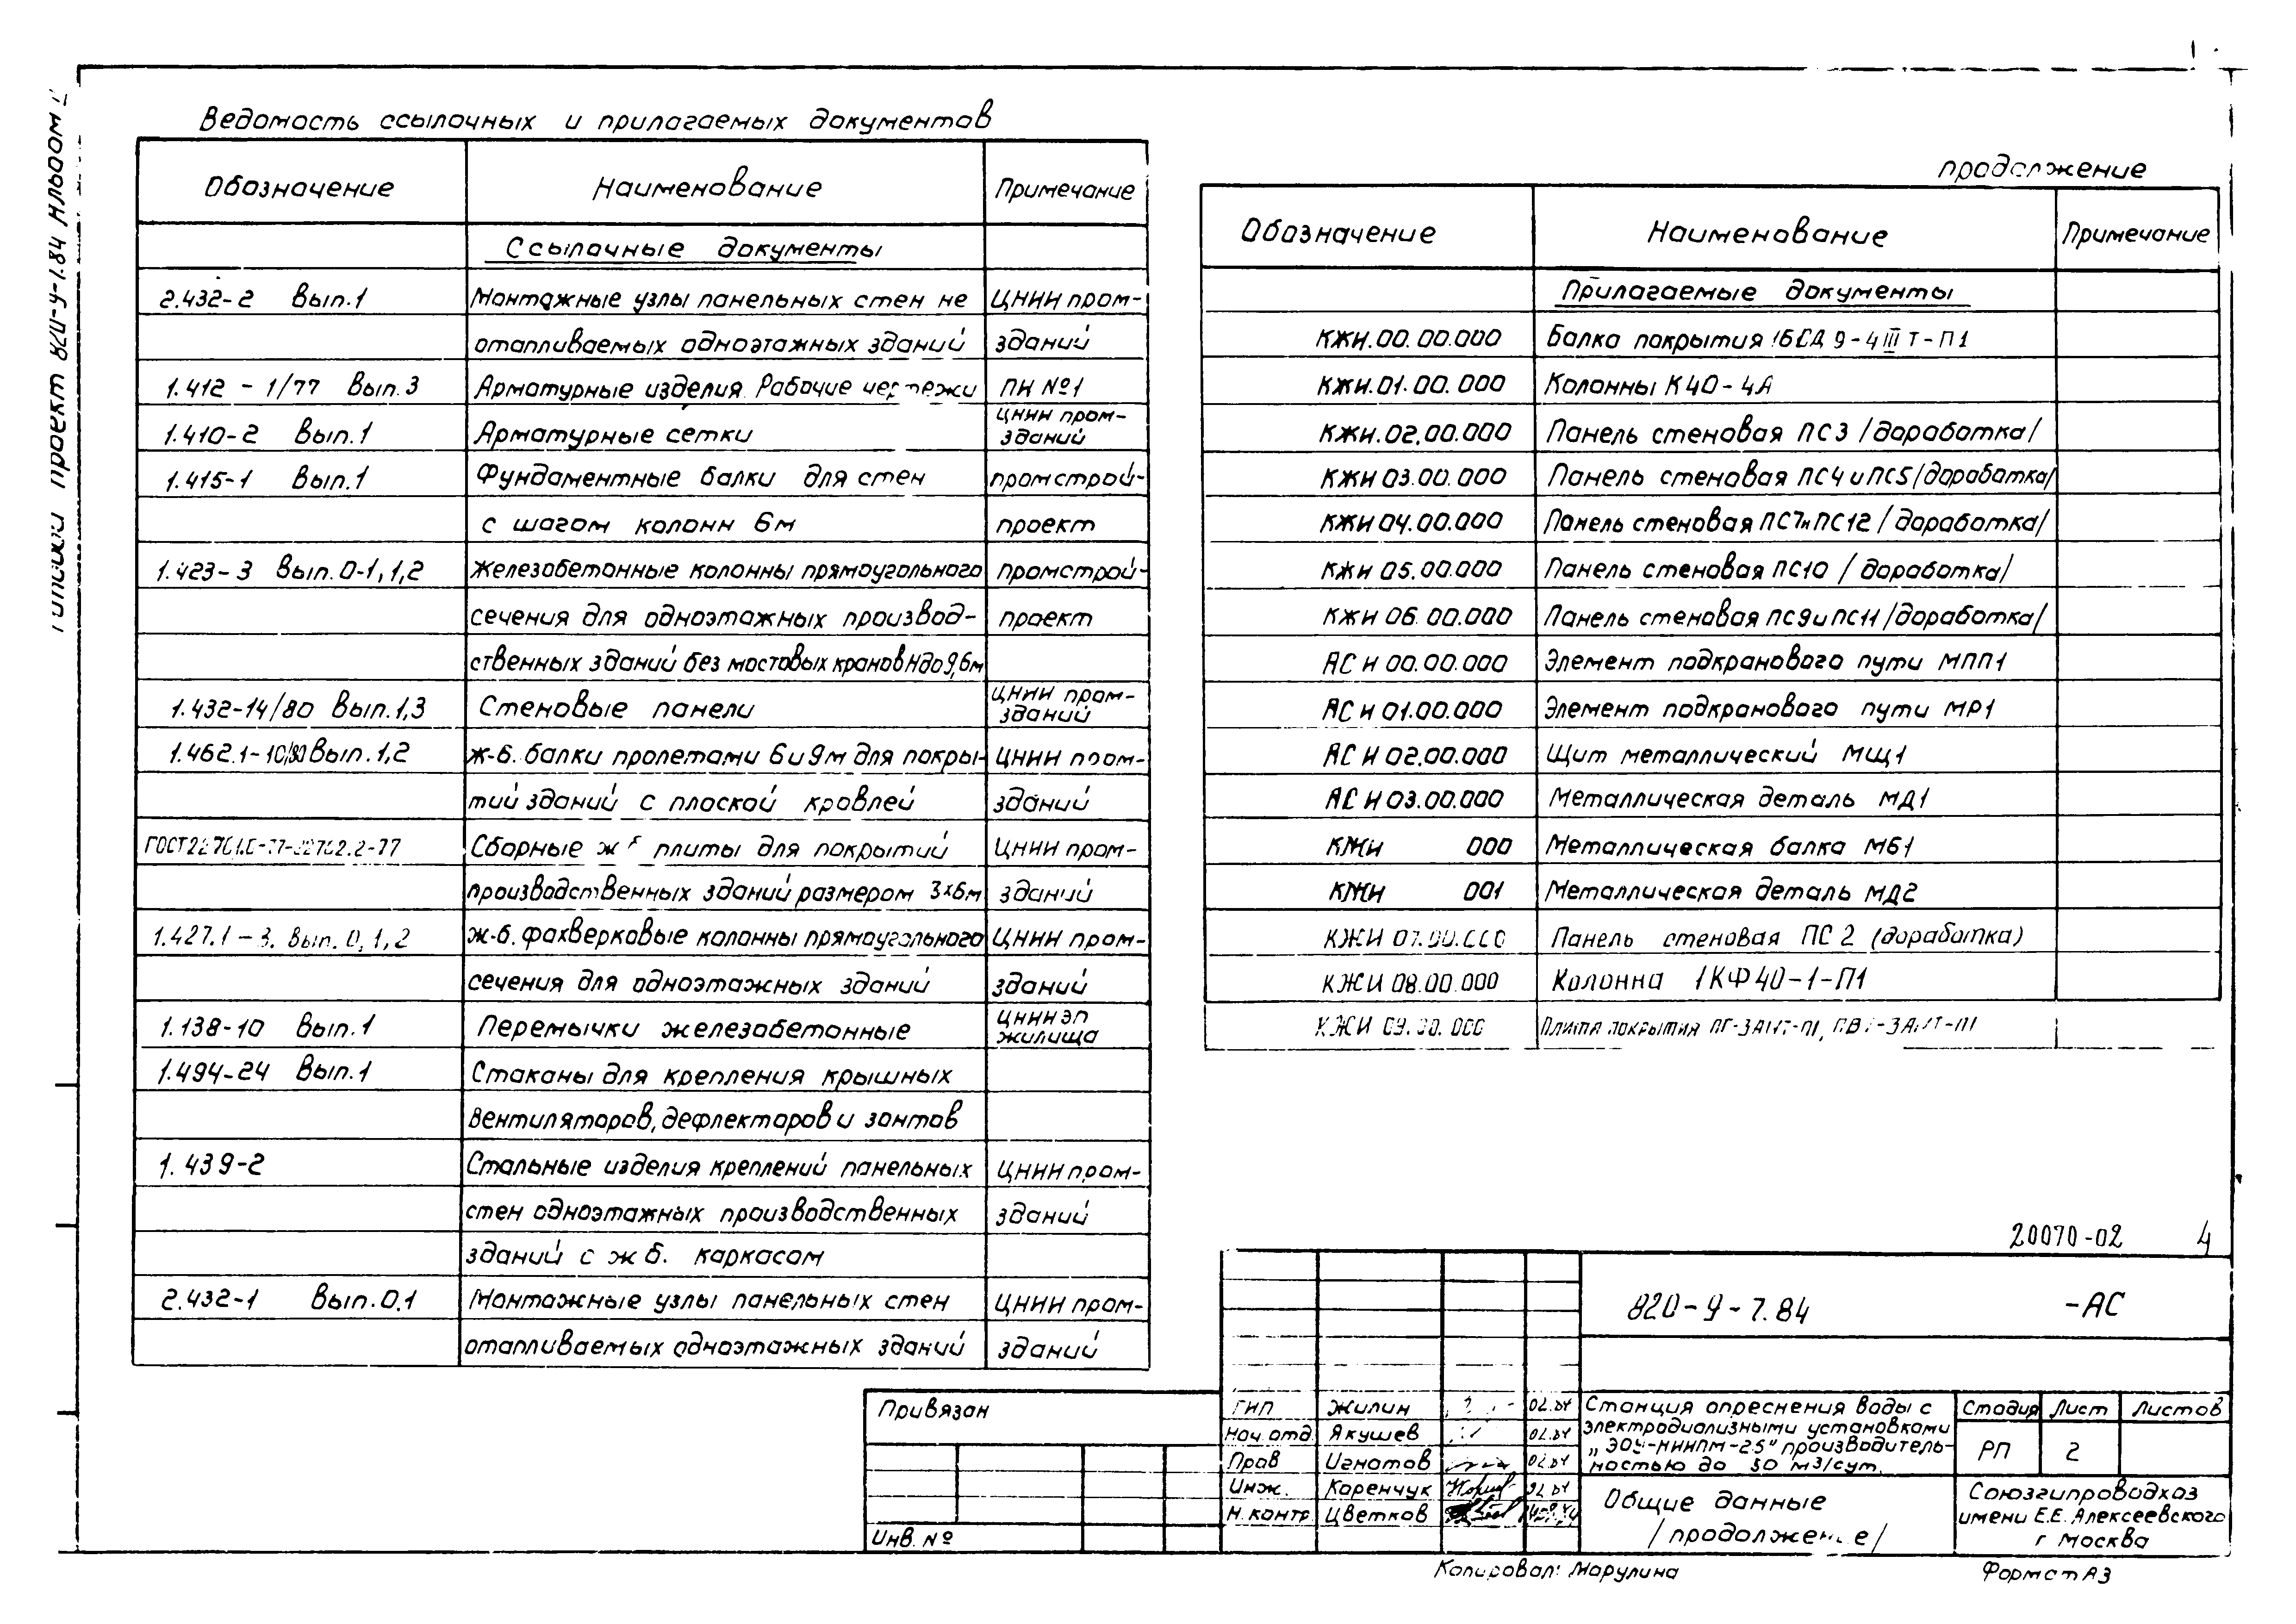 Ведомость ссылочных и прилагаемых документов
Обозначение Наименование Примечание
Ссылочные документы
2.432-2 Вып.1 Монтажные узлы панельных стен не ЦНИИ пром-
отапливаемых одноэтажных зданий зданий
1.412-1/77 Вып.3 Арматурные изделия. Рабочие чертежи ПИ №1
1.410-2 Вып.1 Арматурные сетки ЦНИИ пром-
зданий
1.415-1 Вып.1 Фундаментные балки для стен промстрой-
с шагом колонн 6м проект
1.423-3 Вып.0-1,1,2 Железобетонные колонны прямоугольного промстрой-
сечения для одноэтажных производ- проект
ственных зданий без мостовых кранов Н до 9,6м
1.432-14/80 Вып.1,3 Стеновые панели ЦНИИ пром-
зданий
1.462.1-10/80 Вып.1,2 Ж-б. балки пролетами 6 и 9м для покры- ЦНИИ пром-
тий зданий с плоской кровлей зданий
Сборные ж б плиты для покрытий ЦНИИ пром-
производственных зданий размером 3х6м зданий
1.427.1-3. Вып. 0,1,2 Ж-б. фахверковые колонны прямоугольного ЦНИИ пром-
сечения для одноэтажных зданий зданий
1.138-10 Вып.1 Перемычки железобетонные ЦНИИЭП
жилища
1.494-24 Вып.1 Стаканы для крепления крышных
вентиляторов, дефлекторов и зонтов
1.439-2 Стальные изделия креплений панельных ЦНИИ пром-
стен одноэтажных производственных зданий
зданий с ж б. каркасом
2.432-1 Вып.0.1 Монтажные узлы панельных стен ЦНИИ пром-
отапливаемых одноэтажных зданий зданий
продолжение
Обозначение Наименование Примечание
Прилагаемые документы
КЖИ.00.00.000 Балка покрытия 1БСД 9-4 III Т-П1
КЖИ.01.00.000 Колонны К40-4А
КЖИ.02.00.000 Панель стеновая ПС3 /доработка/
КЖИ 03.00.000 Панель стеновая ПС4 и ПС5 /доработка/
КЖИ 04.00.000 Панель стеновая ПС7 и ПС12 /доработка/
КЖИ 05.00.000 Панель стеновая ПС10 /доработка/
КЖИ 06.00.000 Панель стеновая ПС9 и ПС11 /доработка/
АС И 00.00.000 Элемент подкранового пути МПП1
АС И 01.00.000 Элемент подкранового пути МР1
АС И 02.00.000 Щит металлический МЩ1
АС И 03.00.000 Металлическая деталь МД1
КЖИ 000 Металлическая балка МБ1
КЖИ 001 Металлическая деталь МД2
КЖИ 07.00.000 Панель стеновая ПС 2 (доработка)
КЖИ 08.00.000 Колонна 1КФ40-1-П1
КЖИ 09.00.000 Плита покрытия
20070-02 4
820-У-7.84 -АС
Привязан
Инв. №
ГИП Жилин 02.84
Нач. отд. Якушев 02.84
Пров Игнатов 02.84
Инж. Каренчук 02.84
Н. контр. Цветков
Станция опреснения воды с
электродиализными установками
„ЭОУ-НИИПМ-25" производитель-
ностью до 50 м3/сут.
Стадия Лист Листов
РП 2
Общие данные
/продолжение/
Союзгипроводхоз
имени Е.Е. Алексеевского
г Москва
Копировал: Марулина Формат А3